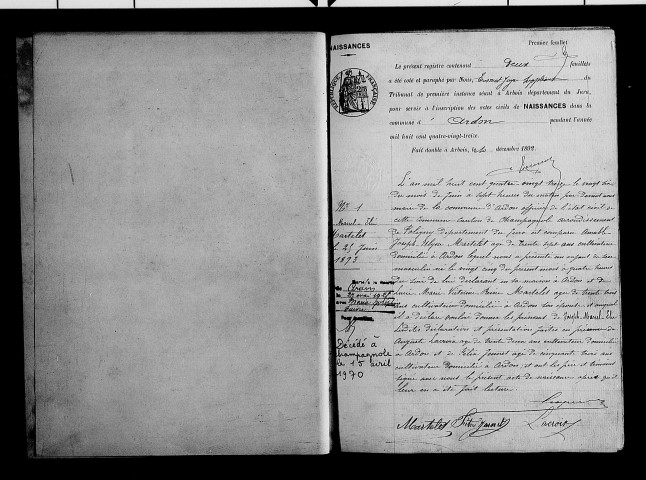 NAISSANCES
Premier feuillet
Le présent registre contenant deux feuillets
a été coté et paraphé par Nous, suppléant du
Tribunal de première instance séant à Arbois département du Jura,
pour servir à l'inscription des actes civils de NAISSANCES dans la
commune d' Ardon pendant l'année
mil huit cent quatre-vingt-treize.
Fait double à Arbois, le décembre 1892.
RÉPUBLIQUE FRANÇAISE
L'an mil huit cent quatre vingt treize le vingt six
du mois de juin à sept heures du matin par devant nous
maire de la commune d'Ardon officier de l'état civil de
cette commune canton de Champagnole arrondissement
de Poligny département du Jura est comparu
Joseph Martelet agé de trente sept ans cultivateur
domicilié à Ardon lequel nous a présenté un enfant de sexe
masculin né le vingt cinq du présent mois à quatre heures
du soir de lui déclarant en sa maison à Ardon et de
Marie Victorine Martelet agée de trente
ans cultivatrice domiciliée à Ardon son épouse et auquel
il a déclaré vouloir donner les prénoms de Joseph Marcel Elie
Lesdites déclaration et présentation faites en présence de
Auguste Lacroix agé de trente deux ans cultivateur domicilié
à Ardon et de Félix Jeunet agé de cinquante trois ans
cultivateur domicilié à Ardon et ont les père et témoins
signé avec nous le présent acte de naissance après qu'il
leur en a été fait lecture
Martelet Félix Jeunet Lacroix
N° 1
Marcel Elie
Martelet
25 Juin
1893
Marié à
22 mai 19
Marie
Décédé à
Champagnole
le 15 avril
1970